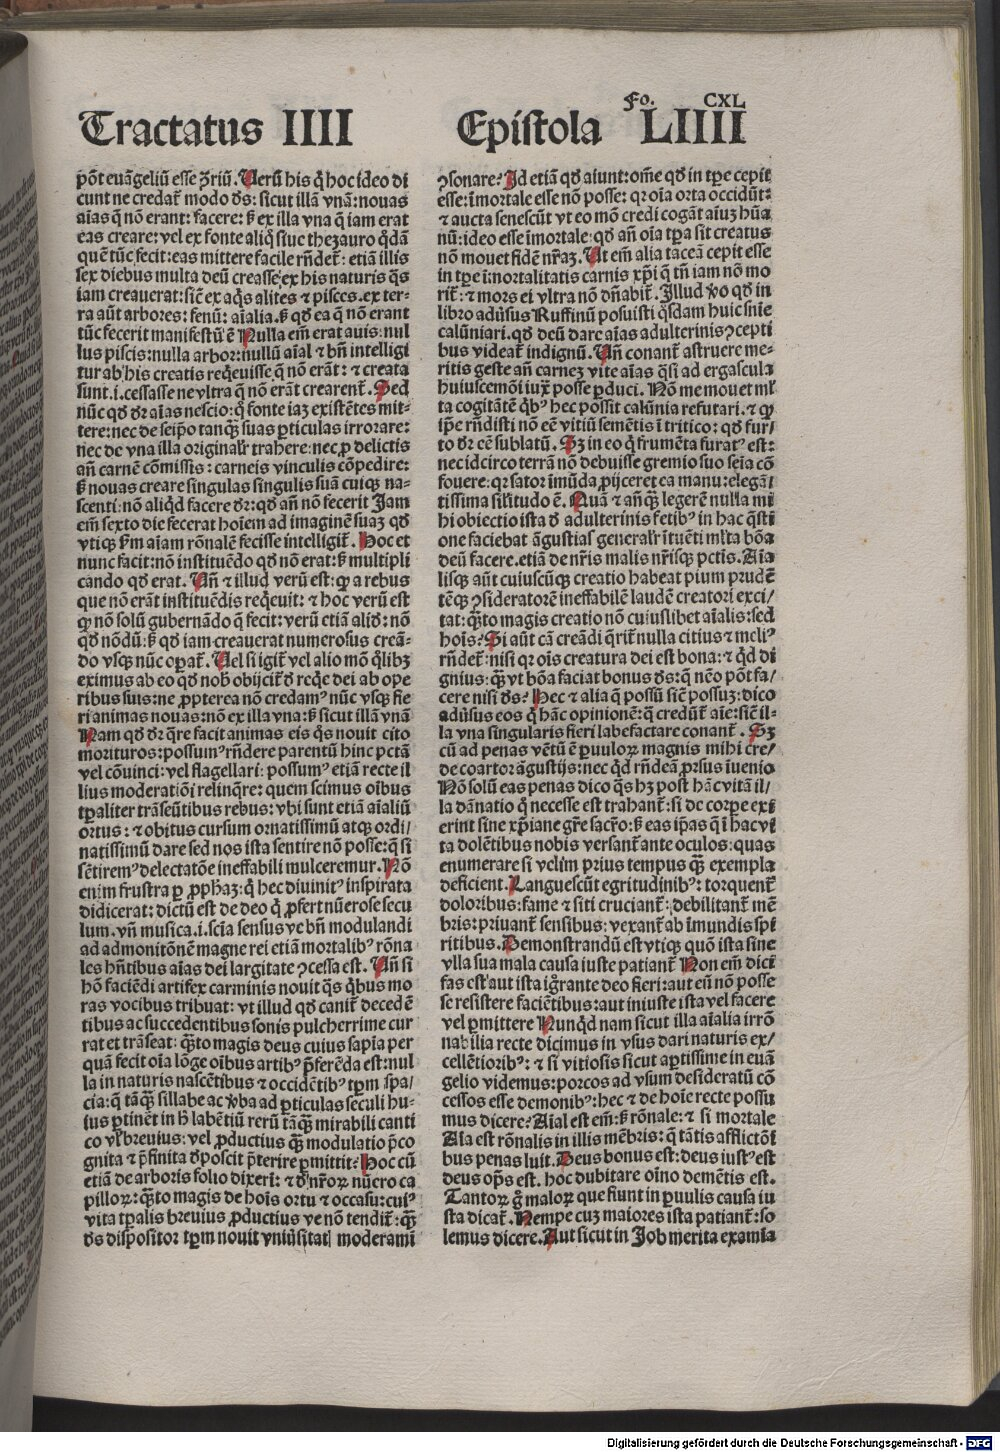 Tractatus IIII
Epistola
Fo. CXL
LIIII
põt euãgeliũ esse ꝯ̃riũ. Uerũ his q̃ hoc ideo di
cunt ne credat᷑ modo ds̃: sicut illã vnã: nouas
aĩas q̃ nõ erant: facere: sꝫ ex illa vna q̃ iam erat
eas creare: vel ex fonte aliq̃ siue thezauro q̃dã
quẽ tũc fecit: eas mittere facile rñdet᷑: etiã illis
sex diebus multa deũ creasse ex his naturis q̃s
iam creauerat: sic̃ ex aq̃s alites ⁊ pisces. ex ter-
ra aũt arbores: fenũ: aĩalia. sꝫ qd ea q̃ nõ erant
tũc fecerit manifestũ ẽ Nulla em̃ erat auis: nul
lus piscis: nulla arbor: nullũ aĩal ⁊ bñ intelligi
tur ab his creatis req̃euisse q̃ nõ erãt: ⁊ creata
sunt .i. cessasse ne vltra q̃ nõ erãt crearent᷑. Sed
nũc qd dr̃ aĩas nescio: q̃ fonte iaꝫ existẽtes mit-
tere: nec de seip̃o tanqꝫ suas ꝑticulas irrorare:
nec de vna illa originalr̃ trahere: nec ꝓ delictis
añ carnẽ cõmissis: carneis vinculis cõpedire:
sꝫ nouas creare singulas singulis suã cuiqꝫ na-
scenti: nõ aliq̃d facere dr̃: qd añ nõ fecerit Jam
em̃ sexto die fecerat hoĩem ad imaginẽ suaꝫ qd
vtiqꝫ sm̃ aĩam rõnalẽ fecisse intelligit᷑. Hoc et
nunc facit: nõ instituẽdo qd nõ erat: sꝫ multipli
cando qd erat. Uñ ⁊ illud verũ est: qꝫ a rebus
que nõ erãt instituẽdis req̃euit: ⁊ hoc verũ est
qꝫ nõ solũ gubernãdo q̃ fecit: verũ etiã aliqd: nõ
qd nõdũ: sꝫ qd iam creauerat numerosus creã-
do vsqꝫ nũc oꝑat᷑. Uel si igit᷑ vel alio mõ q̃libꝫ
eximus ab eo qd nob̃ obijcit᷑ d̃ reqe dei ab ope
ribus suis: ne ꝓpterea nõ credamꝰ nũc vsqꝫ fie
ri animas nouas: nõ ex illa vna: sꝫ sicut illã vnã
Nam qd dr̃ q̃re facit animas eis q̃s nouit cito
morituros: possumꝰ rñdere parentũ hinc pctã
vel cõuinci: vel flagellari: possumꝰ etiã recte il
lius moderatiõi relinq̃re: quem scimus oĩbus
tp̃aliter trãseũtibus rebus: vbi sunt etiã aĩaliũ
ortus: ⁊ obitus cursum ornatissimũ atqꝫ ordi/
natissimũ dare sed nos ista sentire nõ posse: q̃ si
sẽtiremꝰ delectatõe ineffabili mulceremur. Nõ
enim frustra ꝑ ꝓph̃aꝫ: q̃ hec diuinitꝰ inspirata
didicerat: dictũ est de deo q̃ ꝓfert nũerose secu
lum. vñ musica .i. scĩa sensus ve bñ modulandi
ad admonitõnẽ magne rei etiã mortalibꝰ rõna
les hñtibus aĩas dei largitate ꝯcessa est. Uñ si
hõ faciẽdi artifex carminis nouit q̃s q̃bus mo
ras vocibus tribuat: vt illud qd canit᷑ decedẽ
tibus ac succedentibus sonis pulcherrime cur
rat et trãseat: q̃ꝫto magis deus cuius sapĩa per
quã fecit oĩa lõge oĩbus artibꝰ p̃ferẽda est: nul
la in naturis nascẽtibus ⁊ occidẽtibꝰ tp̃m spa/
cia: q̃ tãq̃ꝫ sillabe ac v̾ba ad ꝑticulas seculi hu-
ius ꝑtinẽt in h̃ labẽtiũ rerũ tãq̃ꝫ mirabili canti
co vl̃ breuius: vel ꝓductius q̃ꝫ modulatio p̃co
gnita ⁊ p̃finita d̃poscit p̃terire ꝑmittit: Hoc cũ
etiã de arboris folio dixerĩ: ⁊ d̃ nr̃oꝝ nũero ca
pilloꝝ: q̃ꝫto magis de hoĩs ortu ⁊ occasu: cuiꝰ
vita tp̃alis breuius ꝓductius ve nõ tendit᷑: q̃ꝫ
ds̃ dispositor tp̃m nouit vniũsitatꝭ moderamĩ
ꝯsonare? Id etiã qd aiunt: om̃e qd in tp̃e cepit
esse: ĩmortale esse nõ posse: qꝛ oĩa orta occidũt:
⁊ aucta senescũt vt eo mõ credi cogãt aĩuꝫ hũa
nũ: ideo esse ĩmortale: qd añ oĩa tp̃a sit creatus
nõ mouet fidẽ nr̃aꝫ. Ut em̃ alia taceã cepit esse
in tp̃e ĩmortalitatis carnis xp̃i q̃ tñ iam nõ mo
rit᷑: ⁊ mors ei vltra nõ dñabit᷑. Illud v̾o qd in
libro adũsus Ruffinũ posuisti q̃sdam huic snĩe
calũniari. qd deũ dare aĩas adulterinis ꝯcepti
bus videat᷑ indignũ. Uñ conant᷑ astruere me-
ritis geste añ carneꝫ vite aĩas q̃si ad ergascula
huiuscemõi iuꝫ posse ꝑduci. Nõ me mouet ml̃
ta cogitãtẽ q̃bꝰ hec possit calũnia refutari. ⁊ qꝫ
ip̃e rñdisti nõ eẽ vitiũ semẽtis ĩ tritico: qd fur/
to dr̃ eẽ sublatũ. Sꝫ in eo q̃ frumẽta furatꝰ est:
nec idcirco terrã nõ debuisse gremio suo seĩa cõ
fouere: qꝛ sator ĩmũda ꝓijceret ea manu: elegã/
tissima sil̃itudo ẽ. Quã ⁊ añq̃ꝫ legerẽ nulla mi
hi obiectio ista d̃ adulterinis fetibꝰ in hac q̃sti
one faciebat ãgustias generalr̃ ĩtuẽti ml̃ta bõa
deũ facere. etiã de nr̃is malis nr̃isqꝫ pctis. Aĩa
lisqꝫ aũt cuiuscũqꝫ creatio habeat pium prudẽ
tẽqꝫ ꝯsideratorẽ ineffabilẽ laudẽ creatori exci/
tat: q̃ꝫto magis creatio nõ cuiuslibet aĩalis: sed
hoĩs? Si aũt cã creãdi q̃rit᷑ nulla citius ⁊ meliꝰ
rñdet᷑: nisi qꝛ oĩs creatura dei est bona: ⁊ q̃d di
gnius: q̃ꝫ vt bõa faciat bonus ds̃: q̃ nẽo põt fa/
cere nisi ds̃? Hec ⁊ alia q̃ possũ sic̃ possuꝫ: dico
adũsus eos q̃ hãc opinionẽ: q̃ credũt᷑ aĩe: sic̃ il-
la vna singularis fieri labefactare conant᷑. Sꝫ
cũ ad penas vẽtũ ẽ ꝑuuloꝝ magnis mihi cre/
de coartor ãgustijs: nec q̃d rñdeã ꝓrsus ĩuenio
Nõ solũ eas penas dico q̃s hꝫ post hãc vitã il/
la dãnatio q̃ necesse est trahant᷑: si de corꝑe exi
erint sine xp̃iane gr̃e sacr̃o: sꝫ eas ip̃as q̃ ĩ hac vi
ta dolẽtibus nobis versant᷑ ante oculos: quas
enumerare si velim prius tempus q̃ꝫ exempla
deficient. Languescũt egritudinibꝰ: torquent᷑
doloribus: fame ⁊ siti cruciant᷑: debilitant᷑ mẽ
bris: priuant᷑ sensibus: vexant᷑ ab ĩmundis spi
ritibus. Demonstrandũ est vtiqꝫ quõ ista sine
vlla sua mala causa iuste patiant᷑ Non em̃ dici
fas est aut ista ig̃rante deo fieri: aut eũ nõ posse
se resistere faciẽtibus: aut iniuste ista vel facere
vel ꝑmittere Nunq̃d nam sicut illa aĩalia irrõ
nabilia recte dicimus in vsus dari naturis ex/
cellẽtioribꝰ: ⁊ si vitiosis sicut aꝑtissime in euã
gelio videmus: porcos ad vsum desideratũ cõ
cessos esse demonibꝰ: hec ⁊ de hoĩe recte possu
mus dicere? Aĩal est em̃: sꝫ rõnale: ⁊ si mortale
Aĩa est rõnalis in illis mẽbris: q̃ tãtis afflictõi
bus penas luit. Deus bonus est: deus iustꝰ est
deus op̃s est. hoc dubitare oĩno demẽtis est.
Tantoꝝ g̃ maloꝝ que fiunt in ꝑuulis causa iu
sta dicat᷑. Nempe cuꝫ maiores ista patiant᷑: so
lemus dicere. Aut sicut in Job merita examĩa
Digitalisierung gefördert durch die Deutsche Forschungsgemeinschaft - DFG